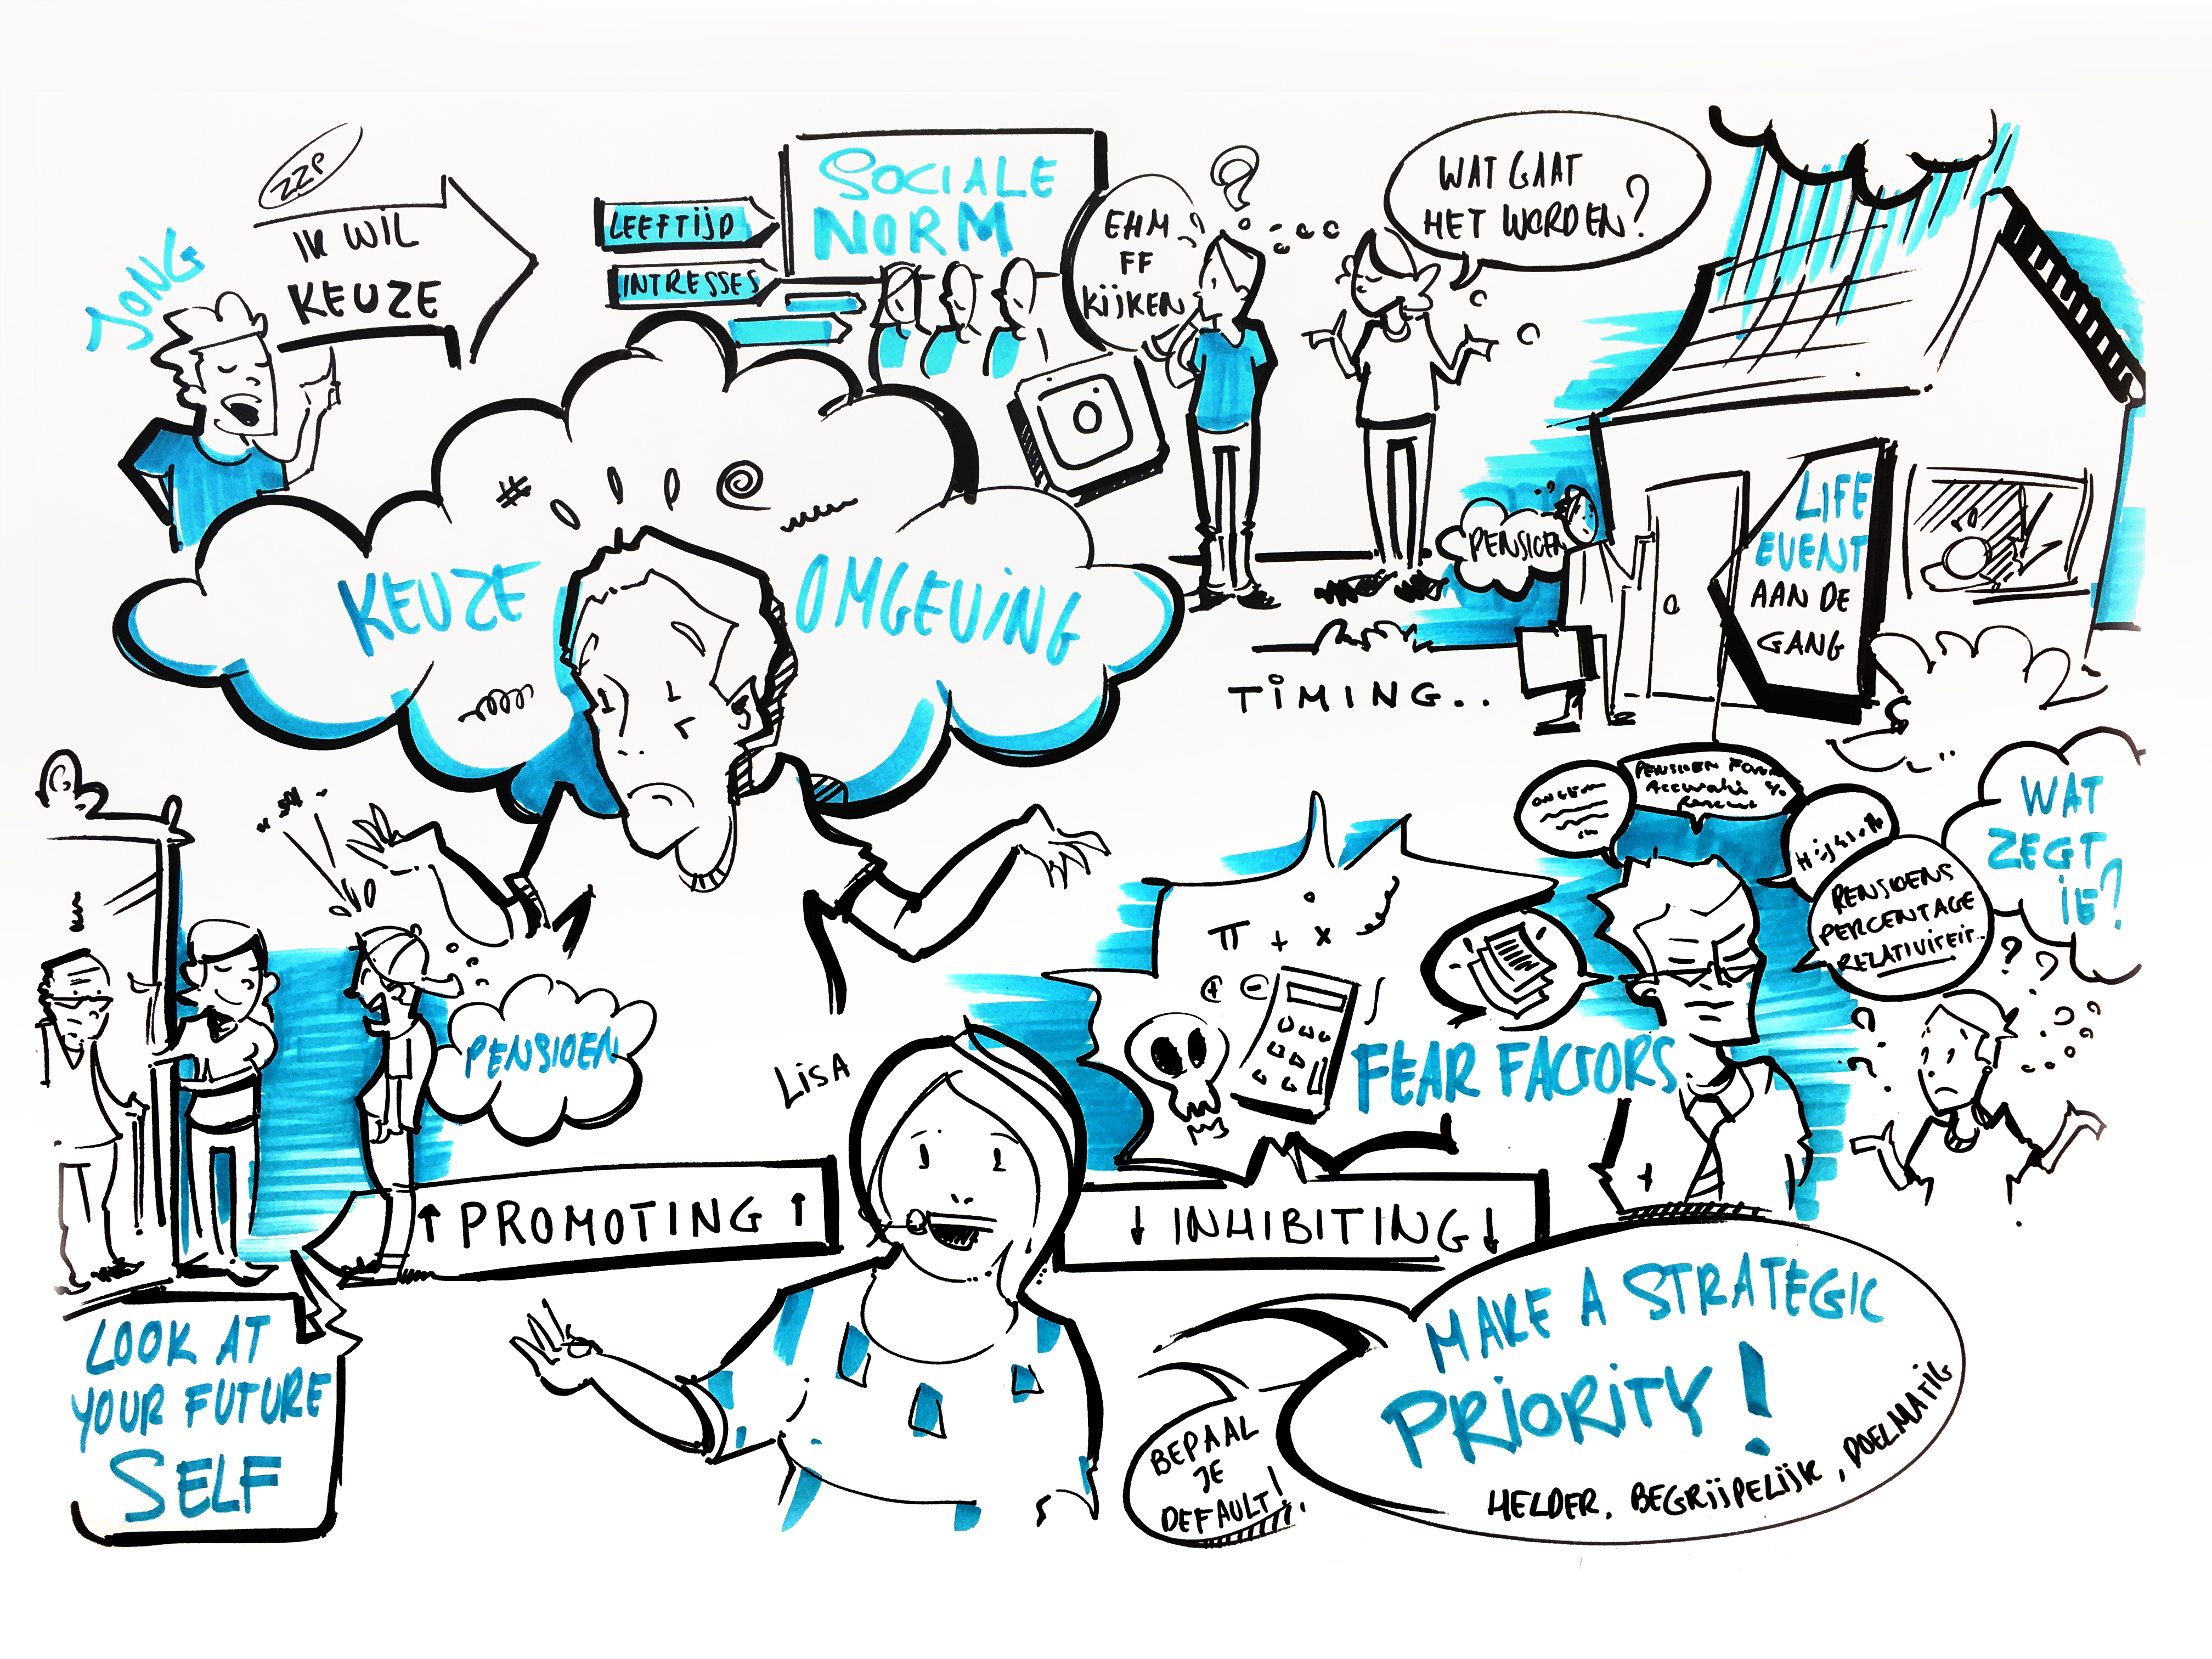 ZZP
IK WIL
KEUZE
JONG
LEEFTIJD
INTRESSES
SOCIALE
NORM
EHM
FF
KIJKEN
?
WAT GAAT
HET WORDEN?
KEUZE
OMGEVING
PENSIOEN
LIFE
EVENT
AAN DE
GANG
TIMING..
PENSIOEN
PENSIOENS
PERCENTAGE
RELATIVITEIT..
WAT
ZEGT
IE?
π + x
+ -
FEAR FACTORS
PENSIOEN
LISA
↑ PROMOTING ↑
↓ INHIBITING ↓
LOOK AT
YOUR FUTURE
SELF
BEPAAL
JE
DEFAULT!
MAKE A STRATEGIC
PRIORITY!
HELDER, BEGRIJPELIJK, DOELMATIG